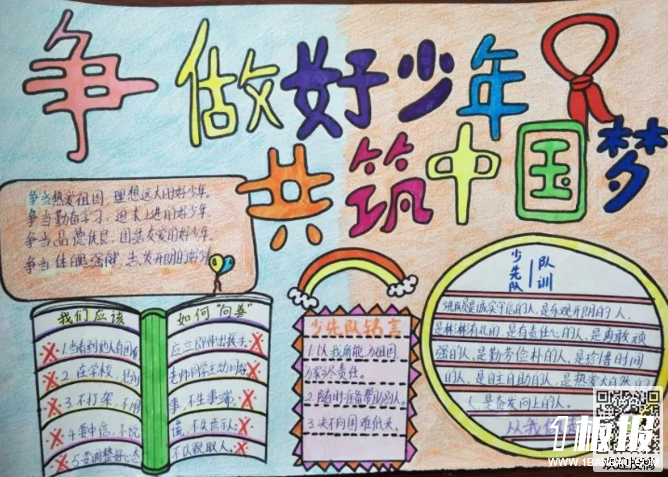 争做好少年
共筑中国梦
争当热爱祖国，理想远大的好少年。
争当勤奋学习，追求上进的好少年
争当品德优良，团结友爱的好少年。
争当体魄强健，活泼开朗的好少
我们应该
如何"向善"
1.当看到他人有困难
应立即伸出援手。
2.在学校，见到
老师同学主动问好
3.不打架，不
事，不生事端。
4.要守信，不说
谎，不失言
5.要调整好心态
不以貌取人。
少先队铭言
1.以我所能为祖国
2.随时准备帮助别人
3.决不向困难低头。
少先队
队训
是诚实守信的人，是乐观开朗的人，
是彬彬有礼的，是有责任心的人，是勇敢顽
强的人，是勤劳俭朴的人，是珍惜时间
的人，是自主自助的人，是热爱大自然的
人，是奋发向上的人。
从我做
1板报
WWW.1BANBAO.COM
欢迎投稿